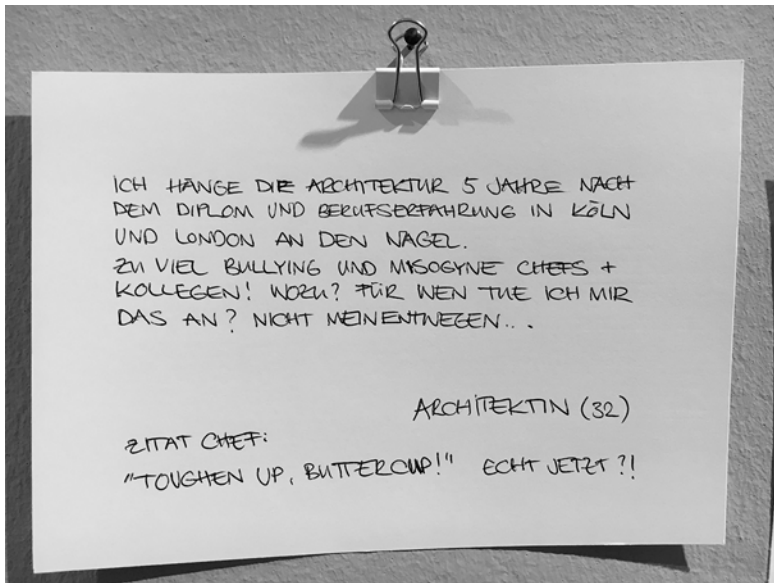 ICH HÄNGE DIE ARCHITEKTUR 5 JAHRE NACH
DEM DIPLOM UND BERUFSERFAHRUNG IN KÖLN
UND LONDON AN DEN NAGEL.
ZU VIEL BULLYING UND MYSOGYNE CHEFS +
KOLLEGEN! WOZU? FÜR WEN TUE ICH MIR
DAS AN? NICHT MEINENTWEGEN...
ARCHITEKTIN (32)
ZITAT CHEF:
"TOUGHEN UP, BUTTERCUP!" ECHT JETZT?!